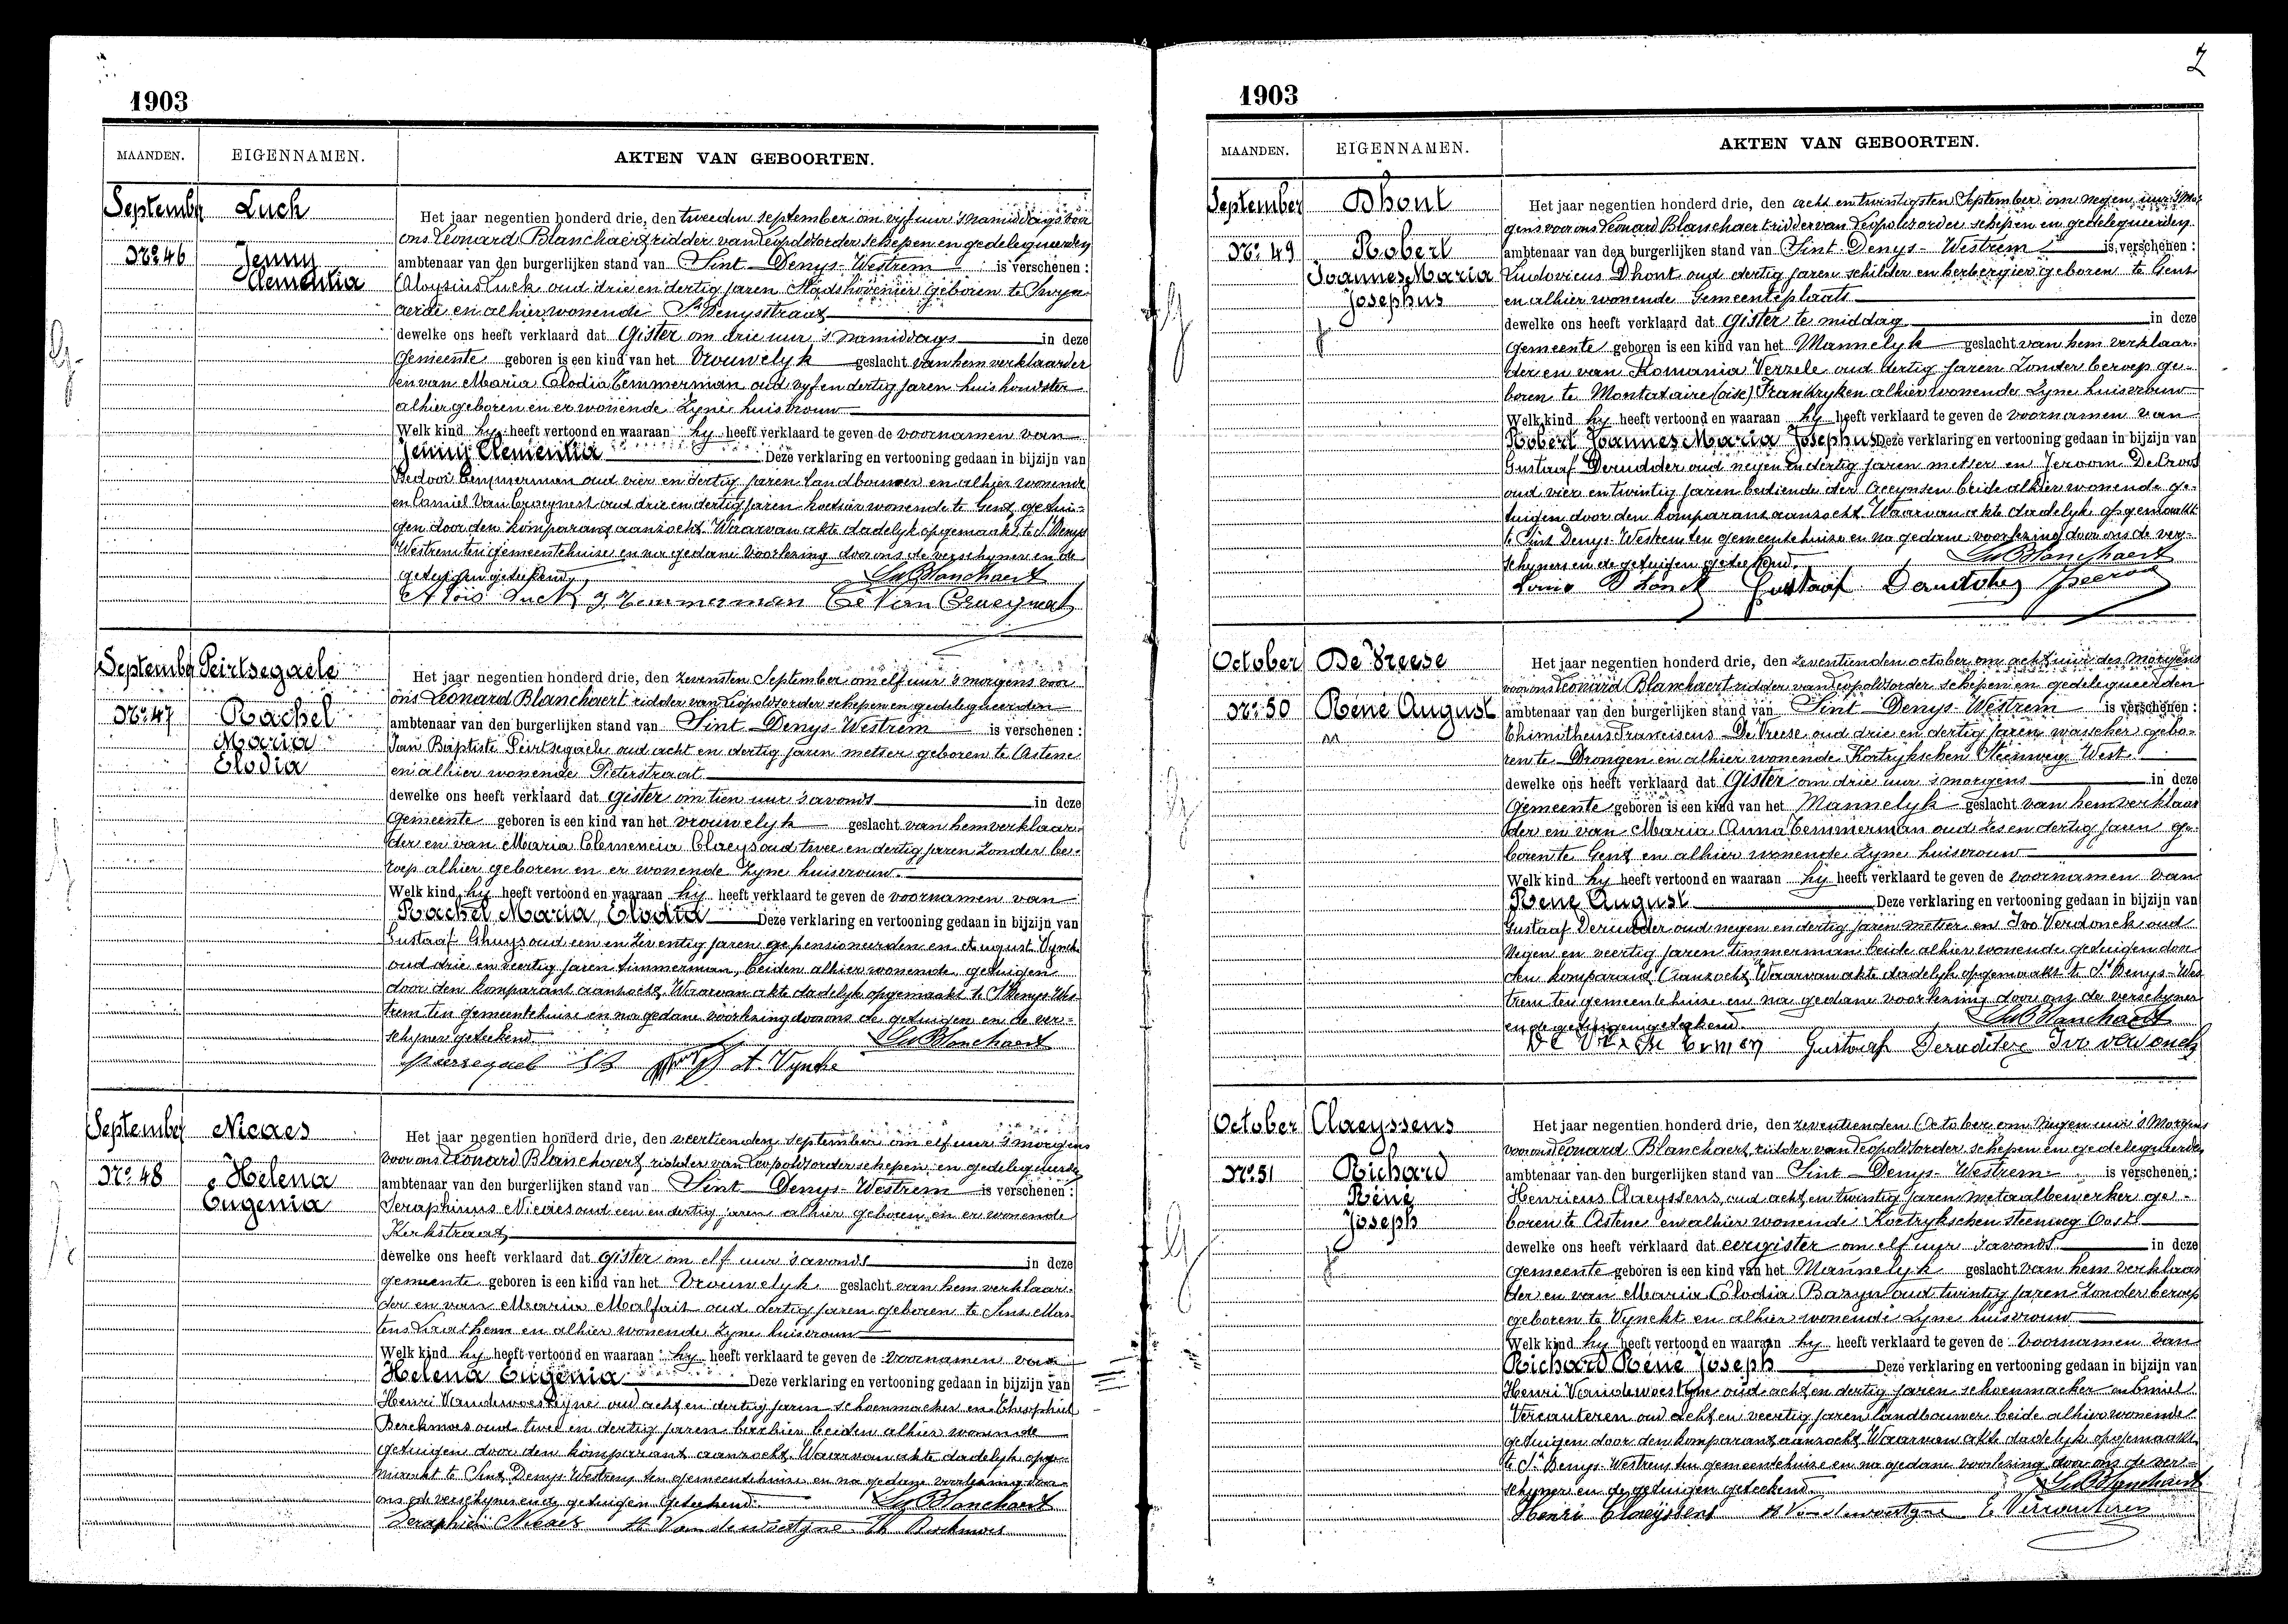 1903
MAANDEN. EIGENNAMEN. AKTEN VAN GEBOORTEN.
September Luck
Het jaar negentien honderd drie, den tweeden september om vijf uur 's namiddags voor
ons Leonard Blanchaert ridder van Leopoldsorder schepen en gedelegueerden
No. 46 Jenny
ambtenaar van den burgerlijken stand van Sint Denys-Westrem is verschenen :
Clementia
Aloysius Luck oud drie en dertig jaren Stadshovenier geboren te Swyn-
aerde en alhier wonende St Denysstraat
dewelke ons heeft verklaard dat Gister om drie uur 's namiddags in deze
Gemeente geboren is een kind van het Vrouwelyk geslacht van hem verklaarder
en van Maria Elodia Temmerman oud vyf en dertig jaren huishoudster
alhier geboren en er wonende Zyne huisvrouw
Welk kind hy heeft vertoond en waaraan hy heeft verklaard te geven de voornamen van
Jenny Clementia Deze verklaring en vertooning gedaan in bijzijn van
Temmerman oud vier en dertig jaren landbouwer en alhier wonende
en Camiel Van Crueynest oud drie en dertig jaren wonende te Gent getui-
gen door den komparant aanzocht. Waarvan akte dadelyk opgemaakt te St Denys
Westrem ten gemeentehuize en na gedane voorlezing door ons de verschyner en de
getuigen geteekend. Le Blanchaert
Alois Luck Temmerman Van Crueynest
September Peirtsegaele
Het jaar negentien honderd drie, den zevensten September om elf uur 's morgens voor
ons Leonard Blanchaert ridder van Leopoldsorder schepen en gedelegueerden
No. 47 Rachel
ambtenaar van den burgerlijken stand van Sint Denys-Westrem is verschenen :
Maria
Jan Baptiste Peirtsegaele oud acht en dertig jaren metser geboren te Astene
Elodia
en alhier wonende Pieterstraat
dewelke ons heeft verklaard dat Gister om tien uur 's avonds in deze
Gemeente geboren is een kind van het vrouwelyk geslacht van hem verklaar-
der en van Maria Clemencia Claeys oud twee en dertig jaren Zonder be-
roep alhier geboren en er wonende Zyne huisvrouw.
Welk kind hy heeft vertoond en waaraan hij heeft verklaard te geven de voornamen van
Rachel Maria, Elodia Deze verklaring en vertooning gedaan in bijzijn van
Gustaaf Ghuys oud een en Zeventig jaren gepensioneerden en August Vyncke
oud drie en veertig jaren timmerman, beiden alhier wonende, getuigen
door den komparant aanzocht. Waarvan akte dadelyk opgemaakt te St Denys Wes-
trem ten gemeentehuize en na gedane voorlezing door ons de getuigen en de ver-
schyner geteekend Le Blanchaert
A. Vyncke
September Nicaes
Het jaar negentien honderd drie, den veertienden September om elf uur 's morgens
voor ons Leonard Blanchaert ridder van Leopoldsorder schepen en gedelegueerden
No. 48 Helena
ambtenaar van den burgerlijken stand van Sint Denys-Westrem is verschenen :
Eugenia
Seraphinus Nicaes oud een en dertig jaren alhier geboren en er wonende
Kerkstraat
dewelke ons heeft verklaard dat Gister om elf uur 's avonds in deze
gemeente geboren is een kind van het Vrouwelyk geslacht van hem verklaar-
der en van Maria Malfait oud dertig jaren geboren te Sint Mar-
tens Laathem en alhier wonende Zyne huisvrouw
Welk kind hy heeft vertoond en waaraan hy heeft verklaard te geven de voornamen van
Helena Eugenia Deze verklaring en vertooning gedaan in bijzijn van
Henri Vandewoestyne oud acht en dertig jaren schoenmaker en Theophiel
Berckmoes oud twee en dertig jaren beiden alhier wonende
getuigen door den komparant aanzocht. Waarvan akte dadelyk opge-
maakt te Sint Denys-Westrem ten gemeentehuize en na gedane voorlezing door
ons de verschyner en de getuigen geteekend. Le Blanchaert
Seraphien Nicaes H Vandewoestyne Th Berckmoes
2
1903
MAANDEN. EIGENNAMEN. AKTEN VAN GEBOORTEN.
September Dhont
Het jaar negentien honderd drie, den acht en twintigsten September om negen uur 's Mor-
gens voor ons Leonard Blanchaert ridder van Leopoldsorder schepen en gedelegueerden
No. 49 Robert
ambtenaar van den burgerlijken stand van Sint Denys-Westrem is verschenen :
Joannes Maria
Ludovicus Dhont oud dertig jaren schilder en herbergier geboren te Gent
Josephus
en alhier wonende Gemeenteplaats
dewelke ons heeft verklaard dat Gister te middag in deze
gemeente geboren is een kind van het Mannelyk geslacht van hem verklaar-
der en van Romania Verzele oud dertig jaren Zonder beroep ge-
boren te Montataire (oise) Frankryken alhier wonende Zyne huisvrouw
Welk kind hy heeft vertoond en waaraan hy heeft verklaard te geven de voornamen van
Robert Joannes Maria Josephus Deze verklaring en vertooning gedaan in bijzijn van
Gustaaf Derudder oud negen en dertig jaren metser en Jeroom
oud vier en twintig jaren bediende der Accynsen beide alhier wonende ge-
tuigen door den komparant aanzocht. Waarvan akte dadelyk opgemaakt
te Sint Denys-Westrem ten gemeentehuize en na gedane voorlezing door ons de ver-
schyner en de getuigen geteekend. Le Blanchaert
Louis Dhondt Gustaaf
October De Vreese
Het jaar negentien honderd drie, den zeventienden october om acht uur des morgens
voor ons Leonard Blanchaert ridder van Leopoldsorder schepen en gedelegueerden
No. 50 René August
ambtenaar van den burgerlijken stand van Sint Denys-Westrem is verschenen :
Thimotheus Franciscus De Vreese oud drie en dertig jaren wasscher gebo-
ren te Drongen en alhier wonende Kortrykschen Steenweg West.
dewelke ons heeft verklaard dat Gister om drie uur 's morgens in deze
Gemeente geboren is een kind van het Mannelyk geslacht van hem verklaar
der en van Maria Anna Temmerman oud Zes en dertig jaren ge-
boren te Gent en alhier wonende Zyne huisvrouw
Welk kind hy heeft vertoond en waaraan hy heeft verklaard te geven de voornamen van
René August Deze verklaring en vertooning gedaan in bijzijn van
Gustaaf Derudder oud negen en dertig jaren metser en Ivo Verdonck oud
Negen en veertig jaren timmerman beide alhier wonende getuigen door
den komparant aanzocht. Waarvan akte dadelyk opgemaakt te St Denys-Wes
trem ten gemeentehuize en na gedane voorlezing door ons de verschyner
en de getuigen geteekend. Le Blanchaert
Gustaaf Deruddere Ivo Verdonck
October Claeyssens
Het jaar negentien honderd drie, den zeventienden October om Negen uur 's Morgens
voor ons Leonard Blanchaert ridder van Leopoldsorder schepen en gedelegueerden
No. 51 Richard
ambtenaar van den burgerlijken stand van Sint Denys-Westrem is verschenen :
René
Henricus Claeyssens, oud acht en twintig jaren metaalbewerker ge-
Joseph
boren te Astene en alhier wonende Kortrykschen steenweg Oost
dewelke ons heeft verklaard dat eergister om elf uur 's avonds in deze
Gemeente geboren is een kind van het Mannelyk geslacht van hem verklaar
der en van Maria Elodia Bazyn oud twintig jaren Zonder beroep
geboren te Vynckt en alhier wonende Zyne huisvrouw
Welk kind hy heeft vertoond en waaraan hy heeft verklaard te geven de Voornamen van
Richard René Joseph Deze verklaring en vertooning gedaan in bijzijn van
Henri Vandewoestyne oud acht en dertig jaren schoenmacker en Emiel
Vercauteren oud acht en veertig jaren landbouwer beide alhier wonende
getuigen door den komparant aanzocht. Waarvan akte dadelyk opgemaakt
te St Denys-Westrem ten gemeentehuize en na gedane voorlezing door ons de ver-
schyner en de getuigen geteekend Le Blanchaert
Henri Claeyssens H Vandewoestyne E Vercauteren